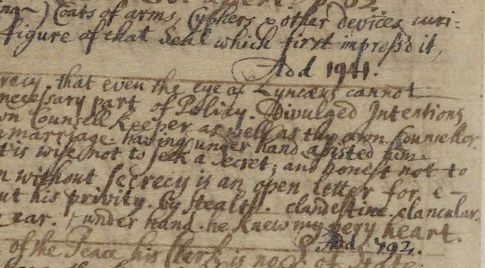 Coats of arms, Cyphers & other devices curi-
figure of that Seal which first impress'd it,
Add 1941.
crecy. that even the eye of Lynceus cannot
necessary part of Policy. Divulged Intentions
own Counsell Keeper as well as thy own Counsellor.
marriage having under hand assisted him
it is wise not to seek a secret; and honest not to
n without secrecy is an open letter for e-
ut his privity. by stealth. clandestine. clancular.
ear. under hand. he knows my very heart.
Add. 792.
of the Peace his Clark is no